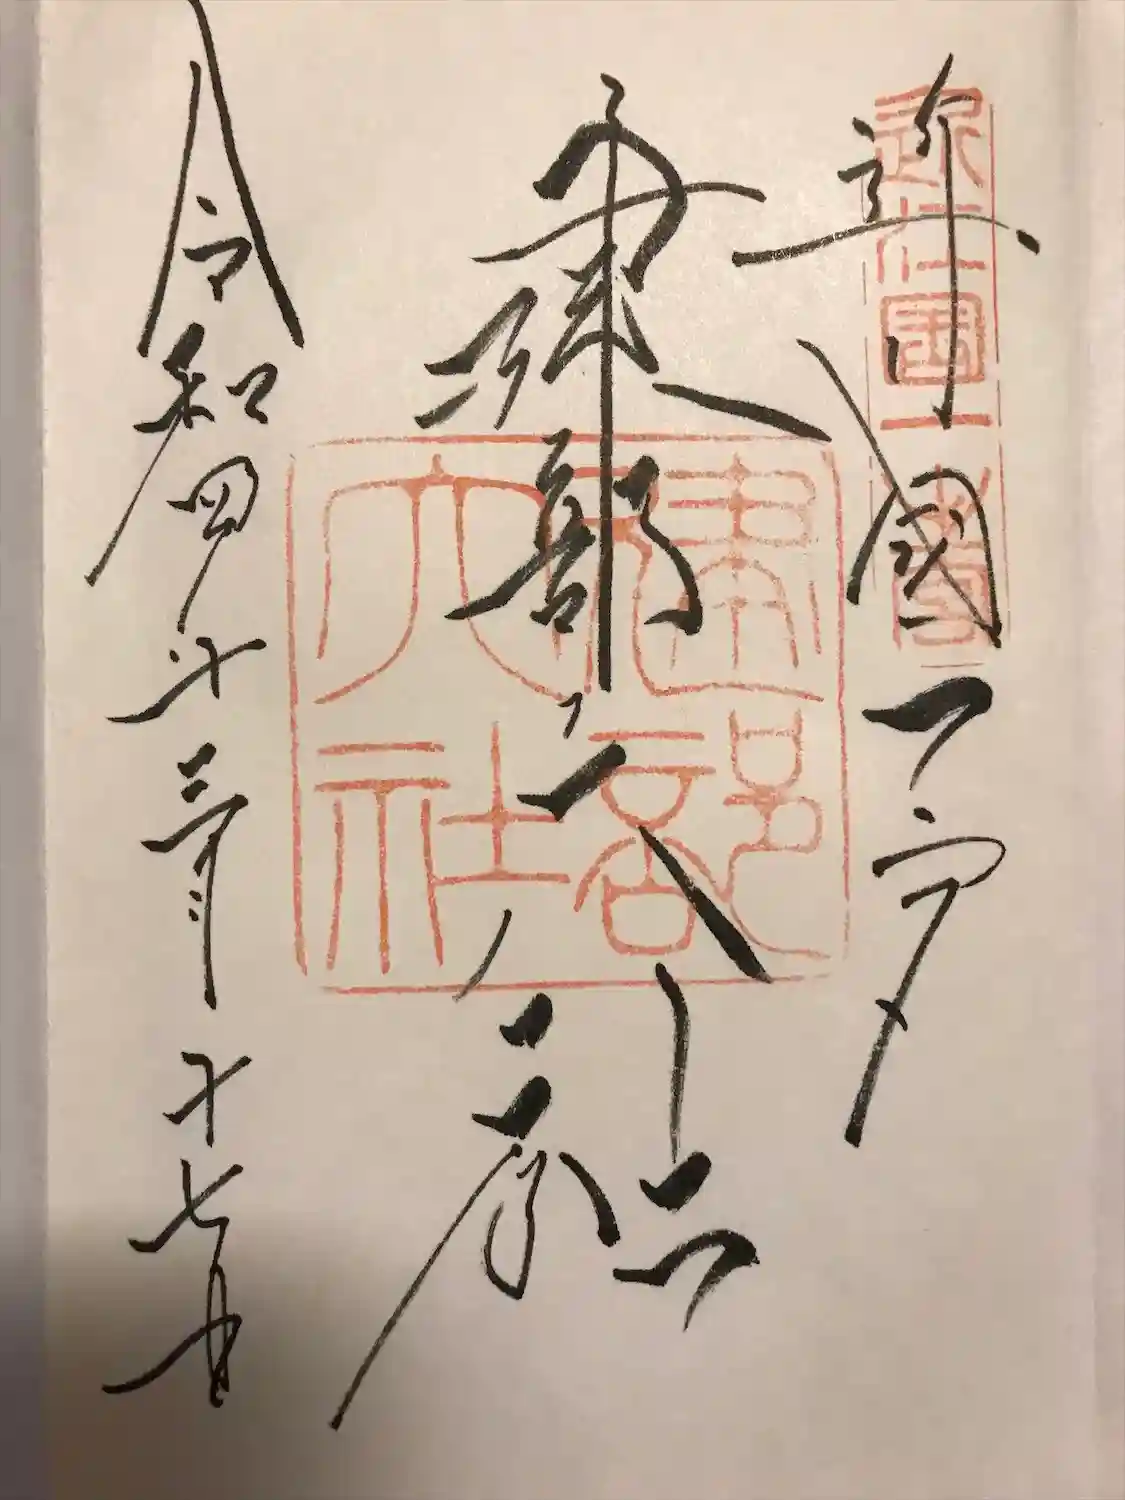 近江國一之宮
近江国一宮
建部大社
建部大社
令和四年十二月十七日